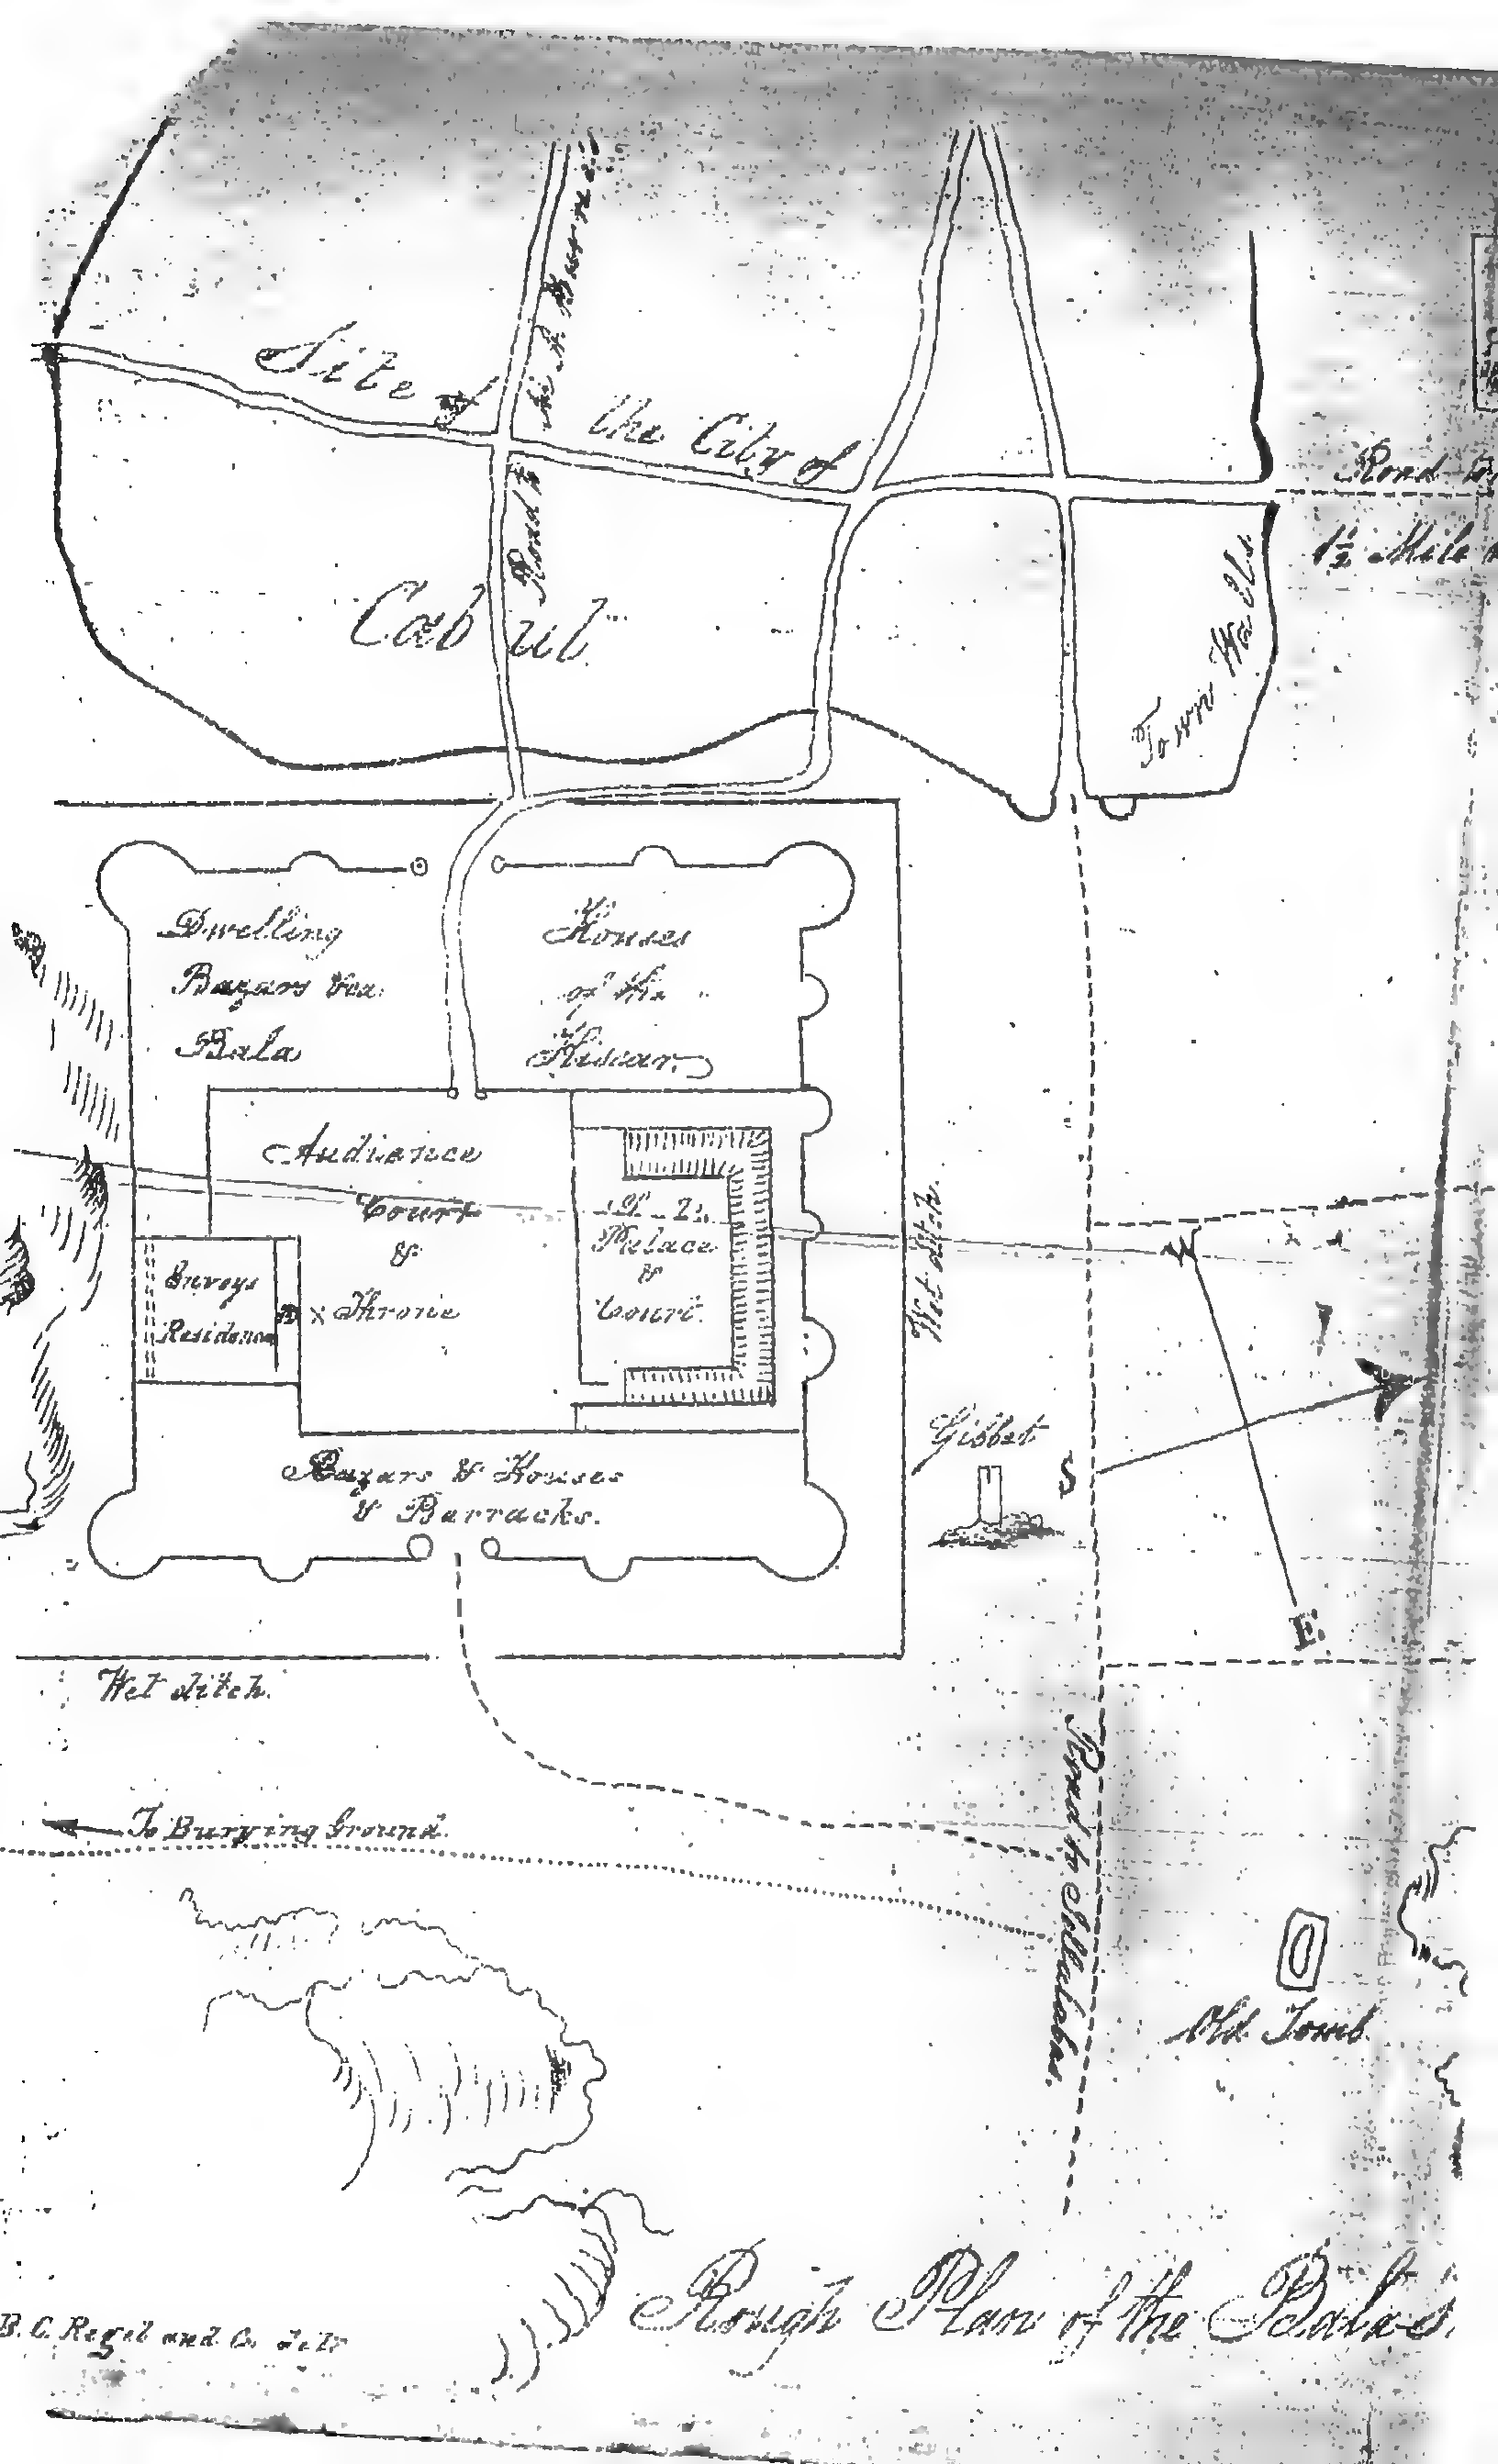 Site of the City of
Cabul
Road to Sir A. Burnes
Road to
1½ Mile
Town Walls.
Dwelling Houses
Bazars &ca. of the
Bala Hissar.
Audience
Court
&
x Throne
Palace
&
Court.
Envoys
Residence
Wet ditch.
Gibbet
W
S
E.
Bazars & Houses
& Barracks.
Wet ditch.
To Burying Ground.
Road to Jellalabad.
Old Tomb
Rough Plan of the Bala
B. C. Regel and Co.